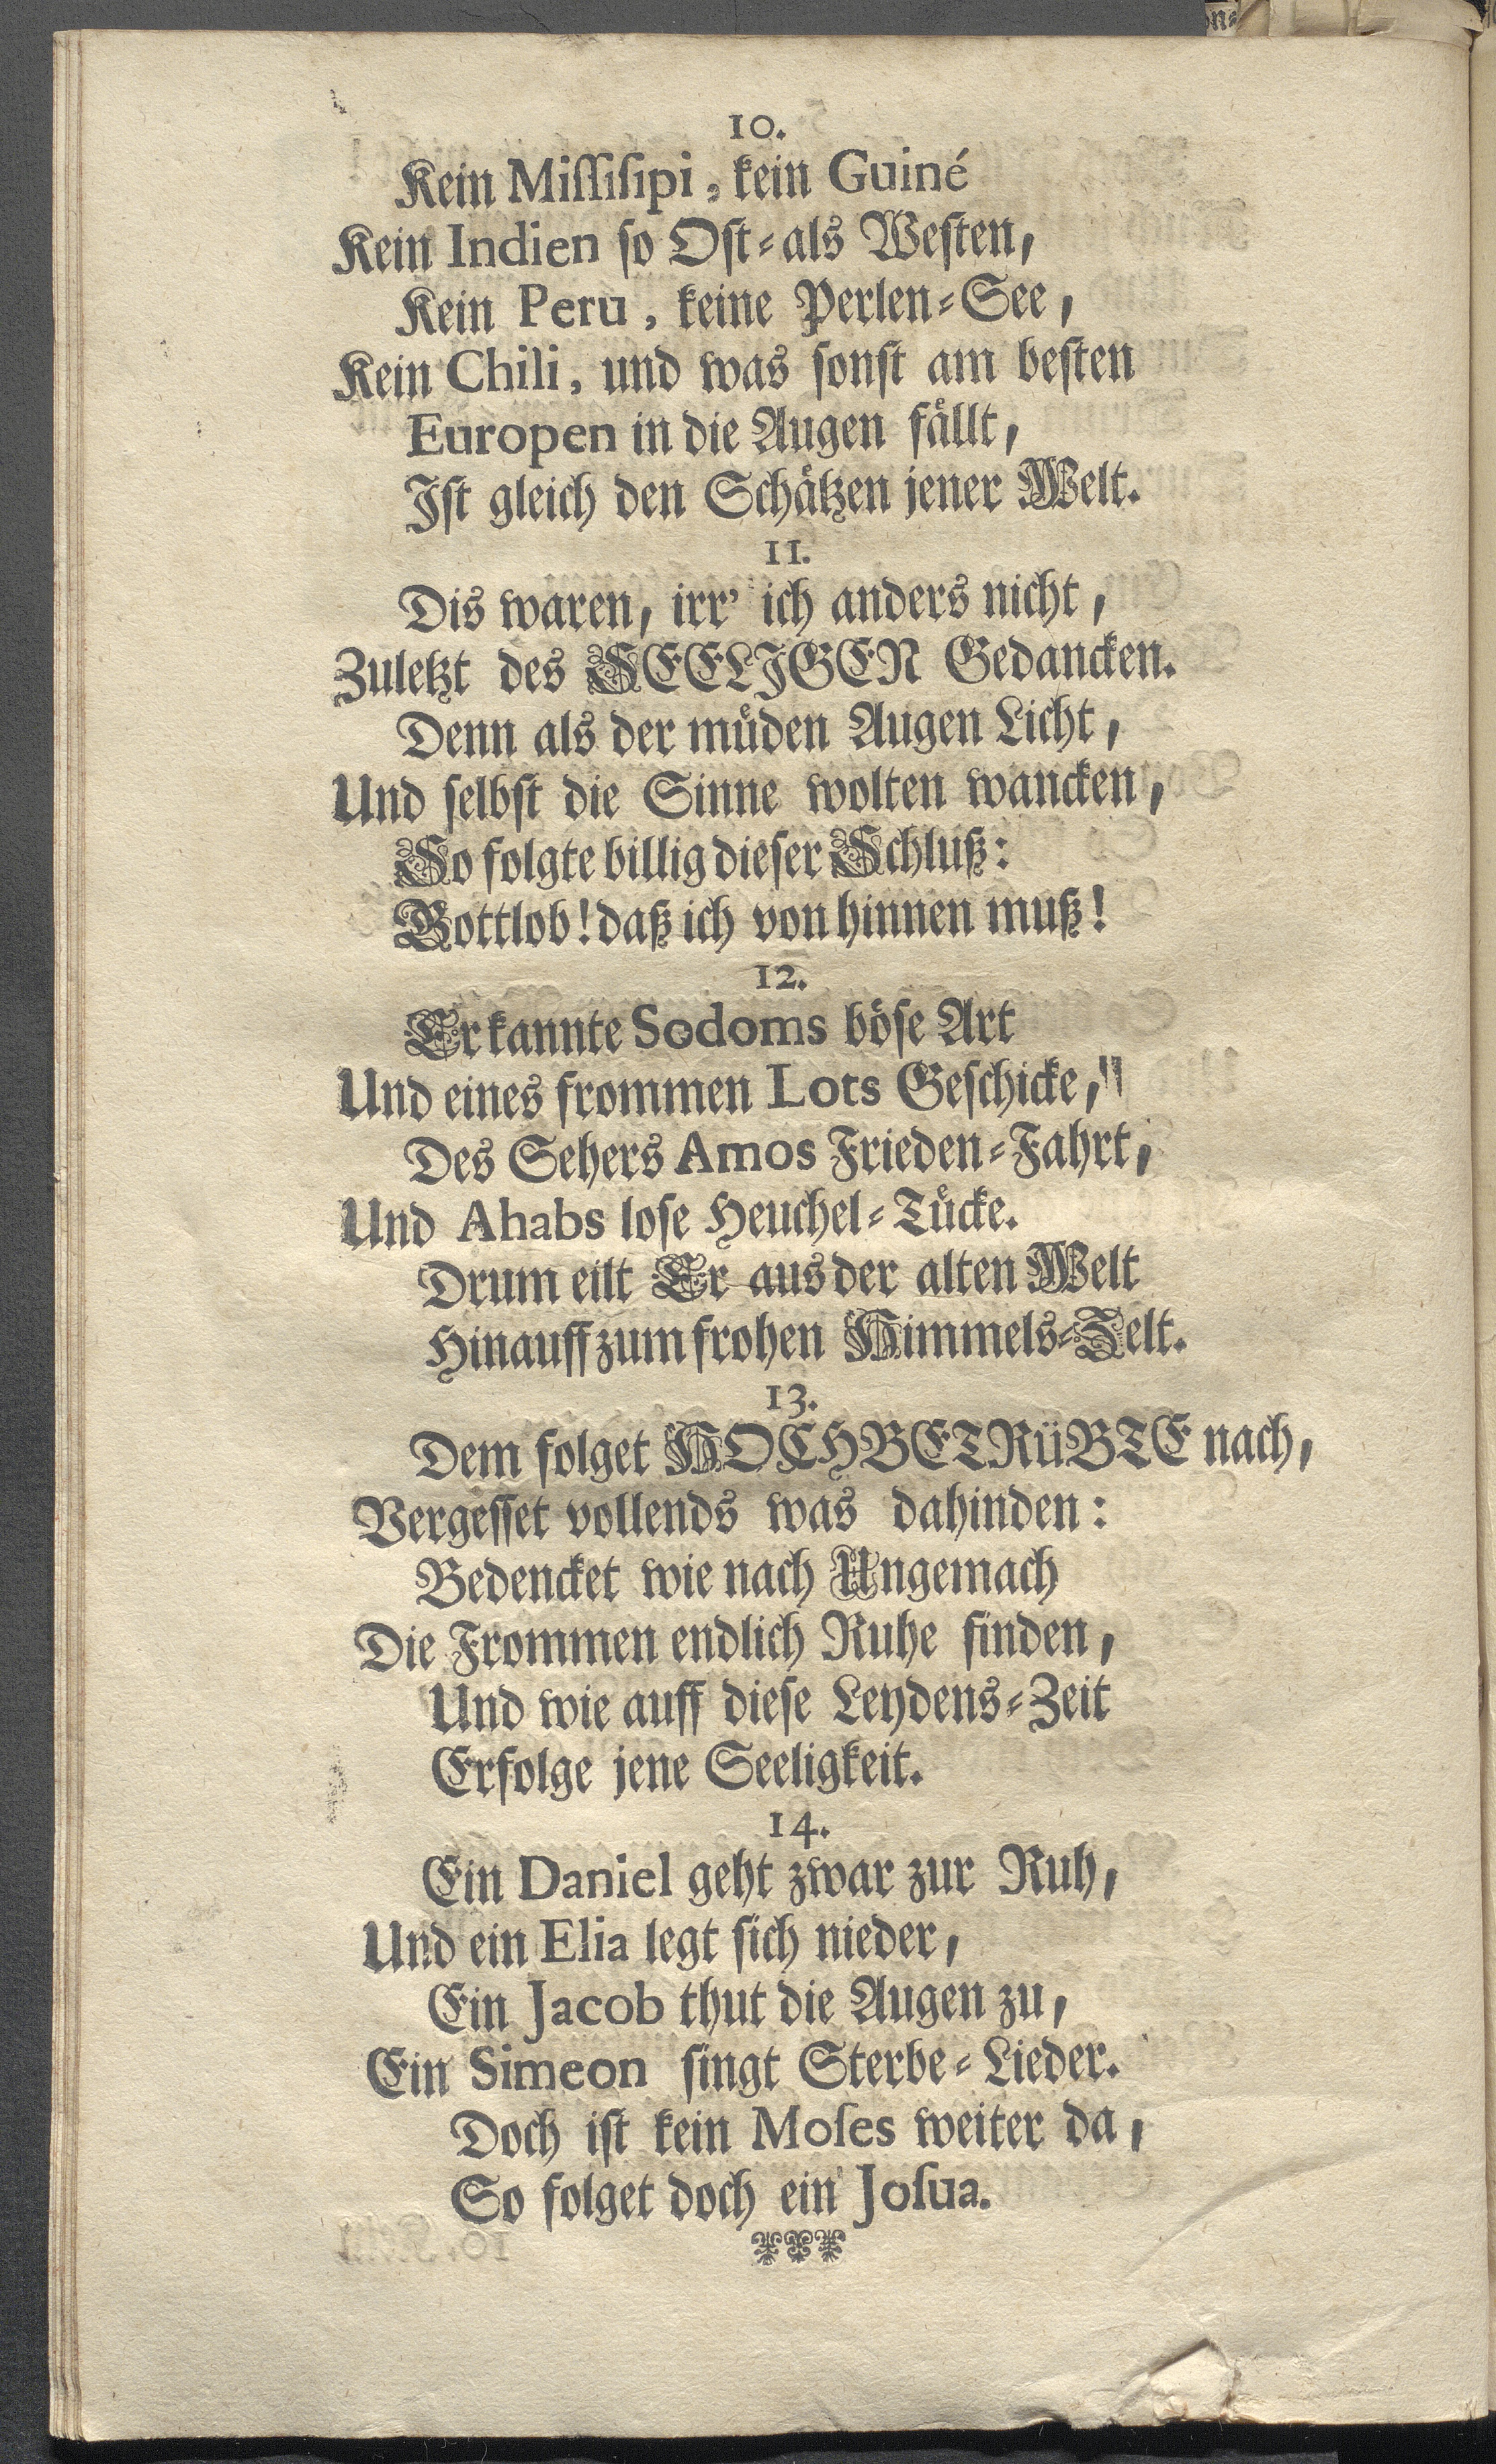 10.
Kein Miſſiſipi, kein Guiné
Kein Indien ſo Oſt-als Weſten,
Kein Peru, keine Perlen-See,
Kein Chili, und was ſonſt am beſten
Europen in die Augen faͤllt,
Iſt gleich den Schaͤtzen jener Welt.
11.
Dis waren, irr' ich anders nicht,
Zuletzt des SEELIGEN Gedancken.
Denn als der muͤden Augen Licht,
Und ſelbſt die Sinne wolten wancken,
So folgte billig dieſer Schluß:
Gottlob! daß ich von hinnen muß!
12.
Er kannte Sodoms boͤſe Art
Und eines frommen Lots Geſchicke,
Des Sehers Amos Frieden-Fahrt,
Und Ahabs loſe Heuchel-Tuͤcke.
Drum eilt Er aus der alten Welt
Hinauff zum frohen Himmels-Zelt.
13.
Dem folget HOCHBETRüBTE nach,
Vergeſſet vollends was dahinden:
Bedencket wie nach Ungemach
Die Frommen endlich Ruhe finden,
Und wie auff dieſe Leydens-Zeit
Erfolge jene Seeligkeit.
14.
Ein Daniel geht zwar zur Ruh,
Und ein Elia legt ſich nieder,
Ein Jacob thut die Augen zu,
Ein Simeon ſingt Sterbe-Lieder.
Doch iſt kein Moſes weiter da,
So folget doch ein Joſua.